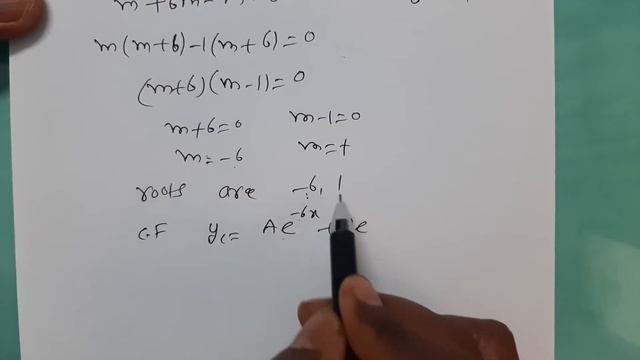 m(m+6)-1(m+6)=0
(m+6)(m-1)=0
m+6=0 m-1=0
m=-6 m=+
roots are -6, 1
C.F y_c= Ae^{-6x} e